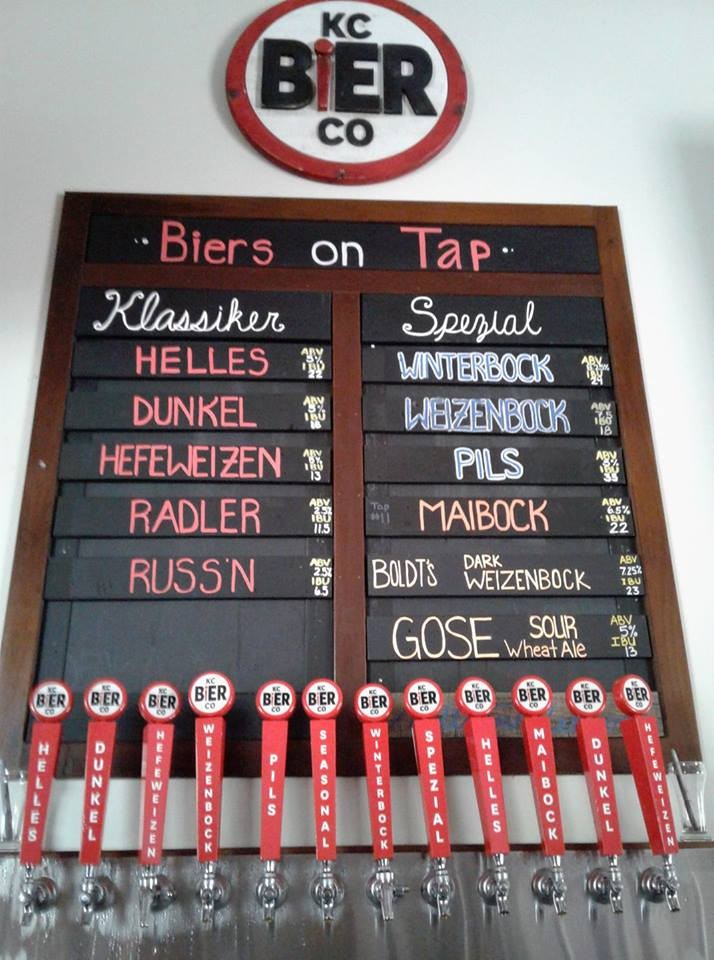 KC
BiER
CO
Biers on Tap
Klassiker
HELLES
ABV
5%
IBU
22
DUNKEL
ABV
5%
IBU
18
HEFEWEIZEN
ABV
IBU
13
RADLER
ABV
2.5%
IBU
11.5
RUSS'N
ABV
2.5%
IBU
6.5
Spezial
WINTERBOCK
ABV
IBU
WEIZENBOCK
ABV
7.5
IBU
18
PILS
ABV
5%
IBU
35
Tap
#11
MAIBOCK
ABV
6.5%
IBU
22
BOLDT'S DARK
WEIZENBOCK
ABV
7.25%
IBU
23
GOSE SOUR
Wheat Ale
ABV
5%
IBU
13
KC
BiER
CO
HELLES
KC
BiER
CO
DUNKEL
KC
BiER
CO
HEFEWEIZEN
KC
BiER
CO
WEIZENBOCK
KC
BiER
CO
PILS
KC
BiER
CO
SEASONAL
KC
BiER
CO
WINTERBOCK
KC
BiER
CO
SPEZIAL
KC
BiER
CO
HELLES
KC
BiER
CO
MAIBOCK
KC
BiER
CO
DUNKEL
KC
BiER
CO
HEFEWEIZEN